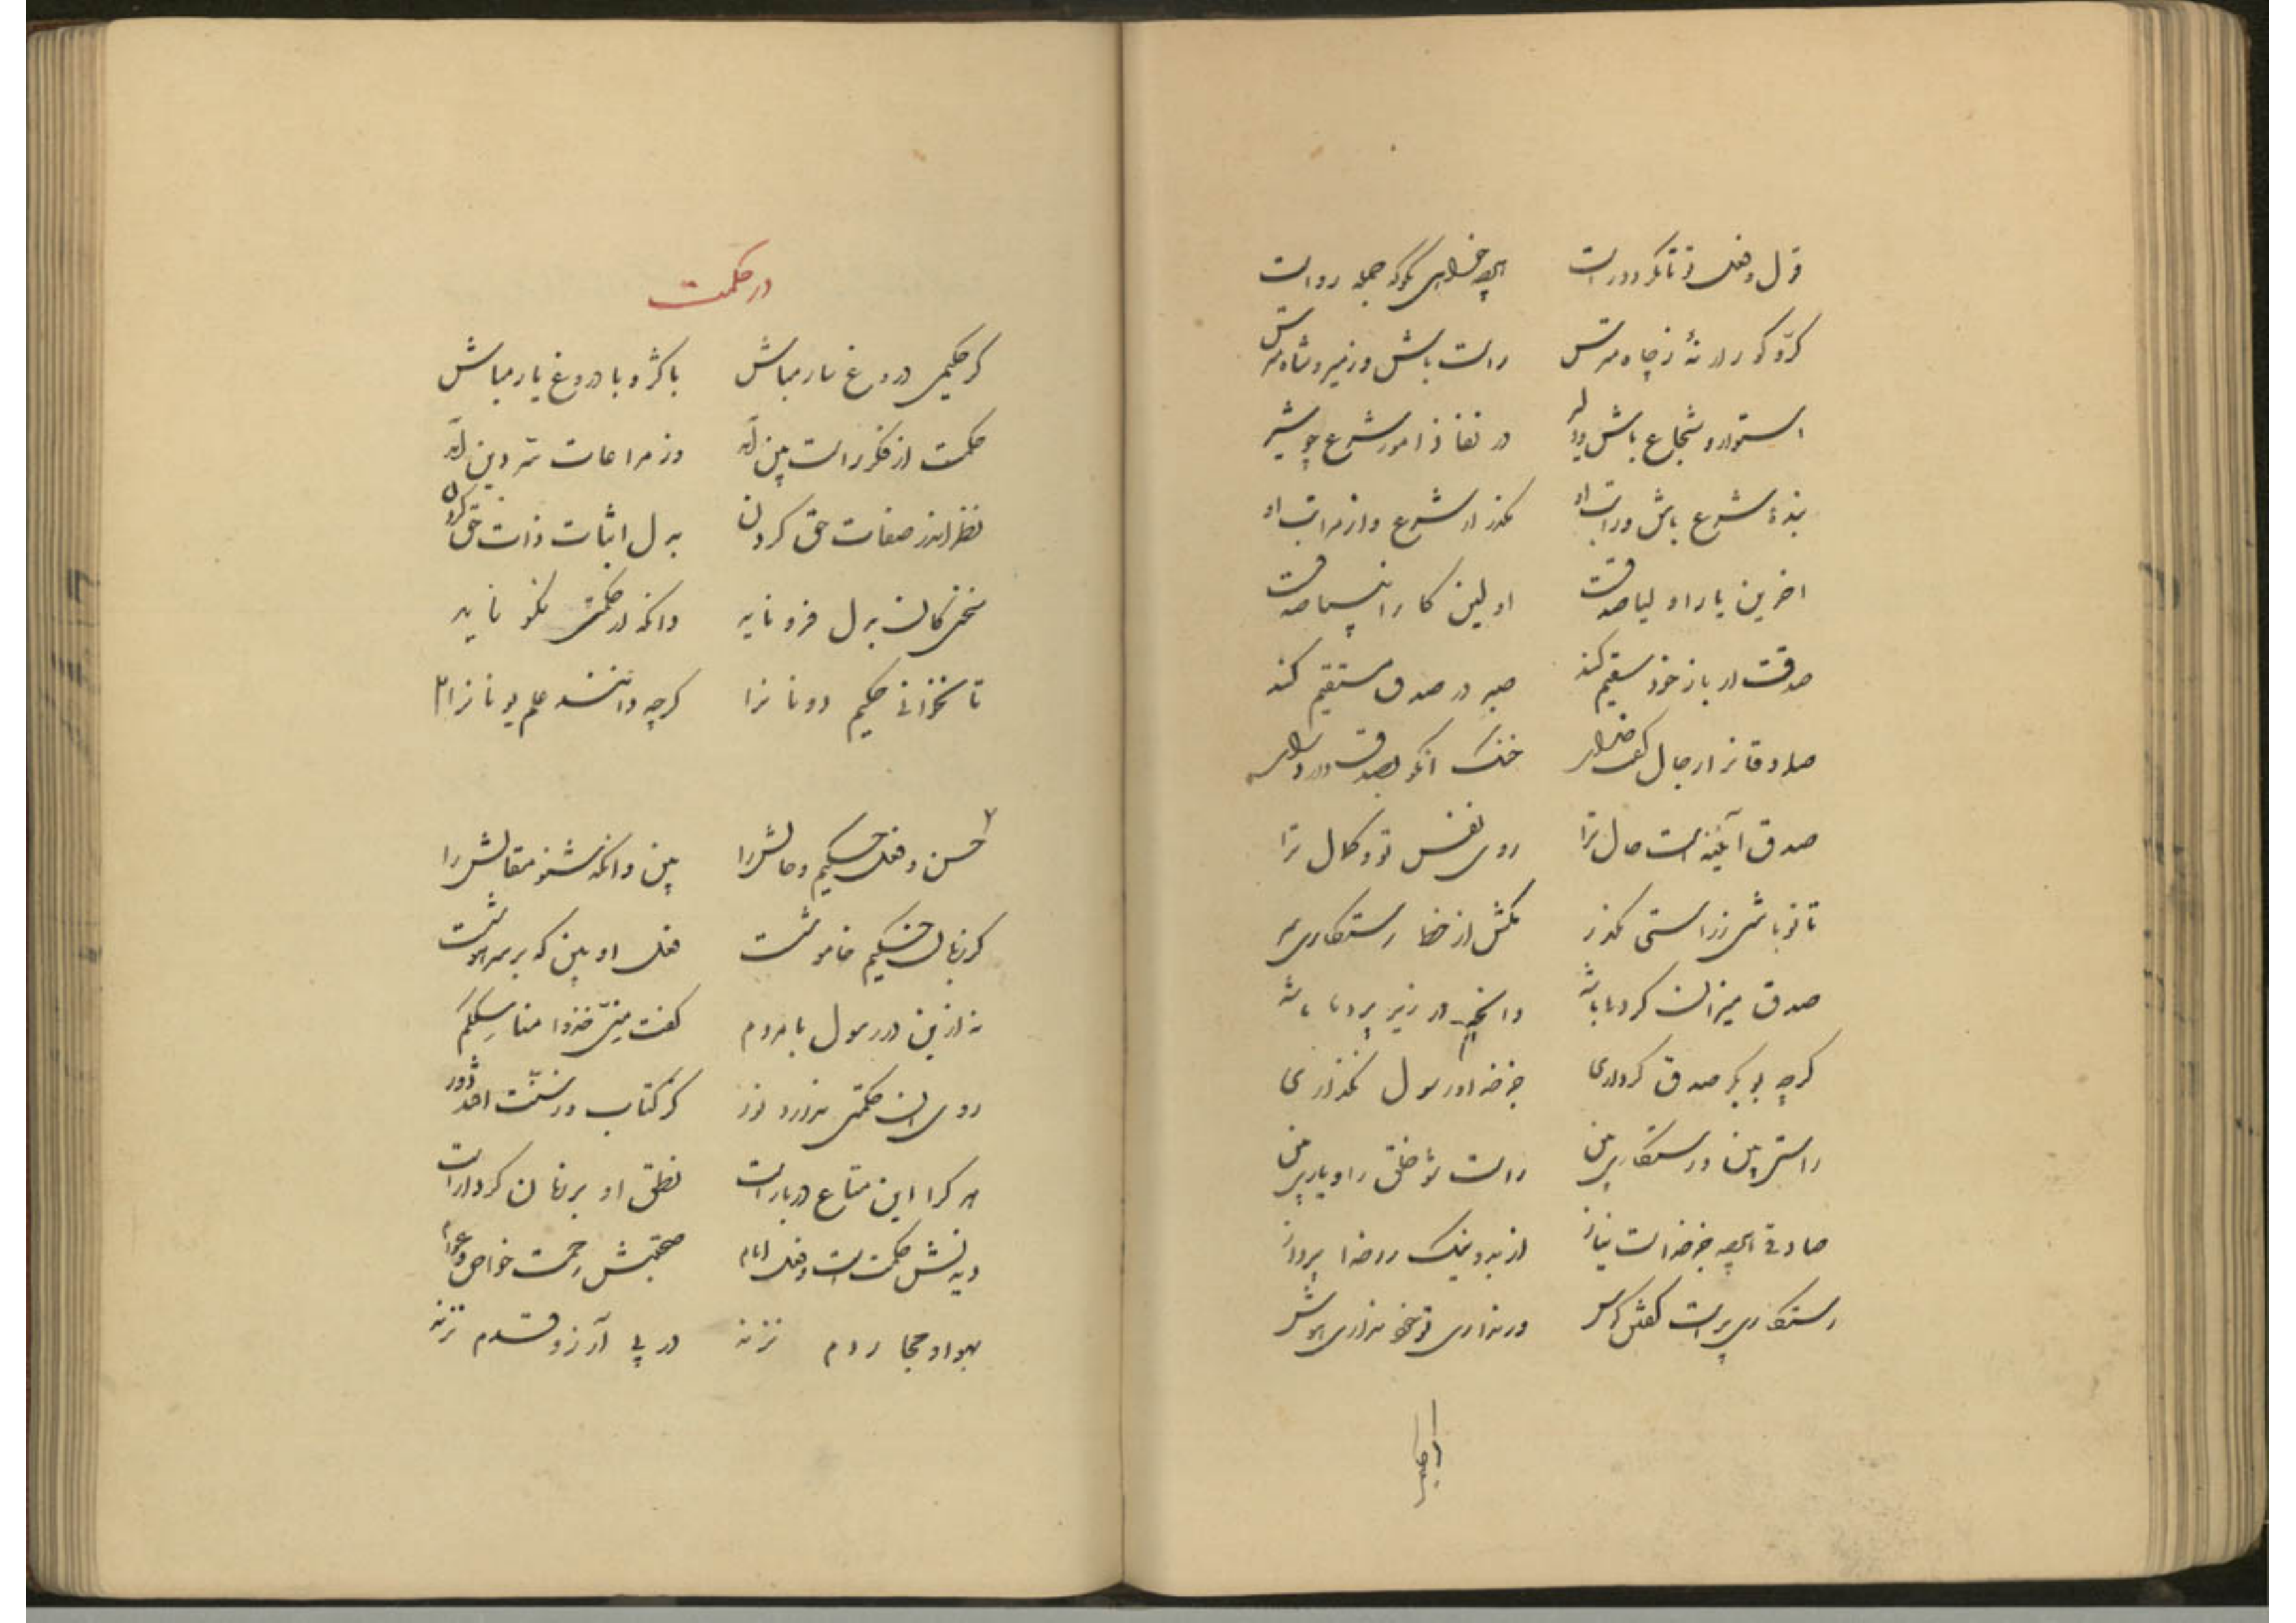 قول و فعل تو تا نگردد راست
هرچه خواهی بگو که جمله رواست
کژ و کور ار نهٔ ز چاه مترس
راست باش و ز میر و شاه مترس
استوار و شجاع باش و دلیر
در نفاذ امور شرع چو شیر
بندهٔ شرع باش و راتب او
مگذر از شرع و از مراتب او
اخرین یار اولیا صدقست
اولین کار انبیا صدقست
صدقت ار باز خود سقیم کند
صبر در صدق مستقیم کند
صادقانرا رجال گفت خدای
خنک انکو بصدق دارد رای
صدق آیینه است حال ترا
روی نفس تو و کمال ترا
تا تو باشی ز راستی مگذر
مکش از خط رستگاری سر
صدق میزان کردها باشد
وانچه در زیر پردها باشد
گرچه بوبکر صدق کرداری
جز خدا و رسول نگذاری
راستی بین و رستگاری بین
راست شو خلق را و یاری بین
صادقی هرچه جز خداست بباز
از بد و نیک رو خدا پرداز
رستگاری براست گفتن کوش
ور نداری تو خود نداری هوش
در حکمت
گر حکیمی دروغ سار مباش
با کژ و با دروغ یار مباش
حکمت از فکر راست بین آید
وز مراعات سر دین آید
نظر اندر صفات حق کردن
بدل اثبات ذات حق کردن
سخنی کان بدل فرو ناید
وانکه از حکمتی نکو ناید
تا نخوانی حکیم دونانرا
گرچه دانند علم یونانرا
حسن و فعل حکیم و حالش را
بین وانگه شنو مقالش را
گر زبان حکیم خاموشست
فعل او بین که بر سر هوشست
نه ازین در رسول با مردم
گفت منّی خذوا مناسککم
روی ان حکمتی ندارد نور
کز کتاب و ز سنتست او دور
هرکرا این متاع در بارست
نطق او بر زبان کردارست
دیدنش حکمتست و فعل امام
صحبتش رحمت خواص و عوام
بهوا و مجاز دم نزند
در پی آرزو قدم نزند